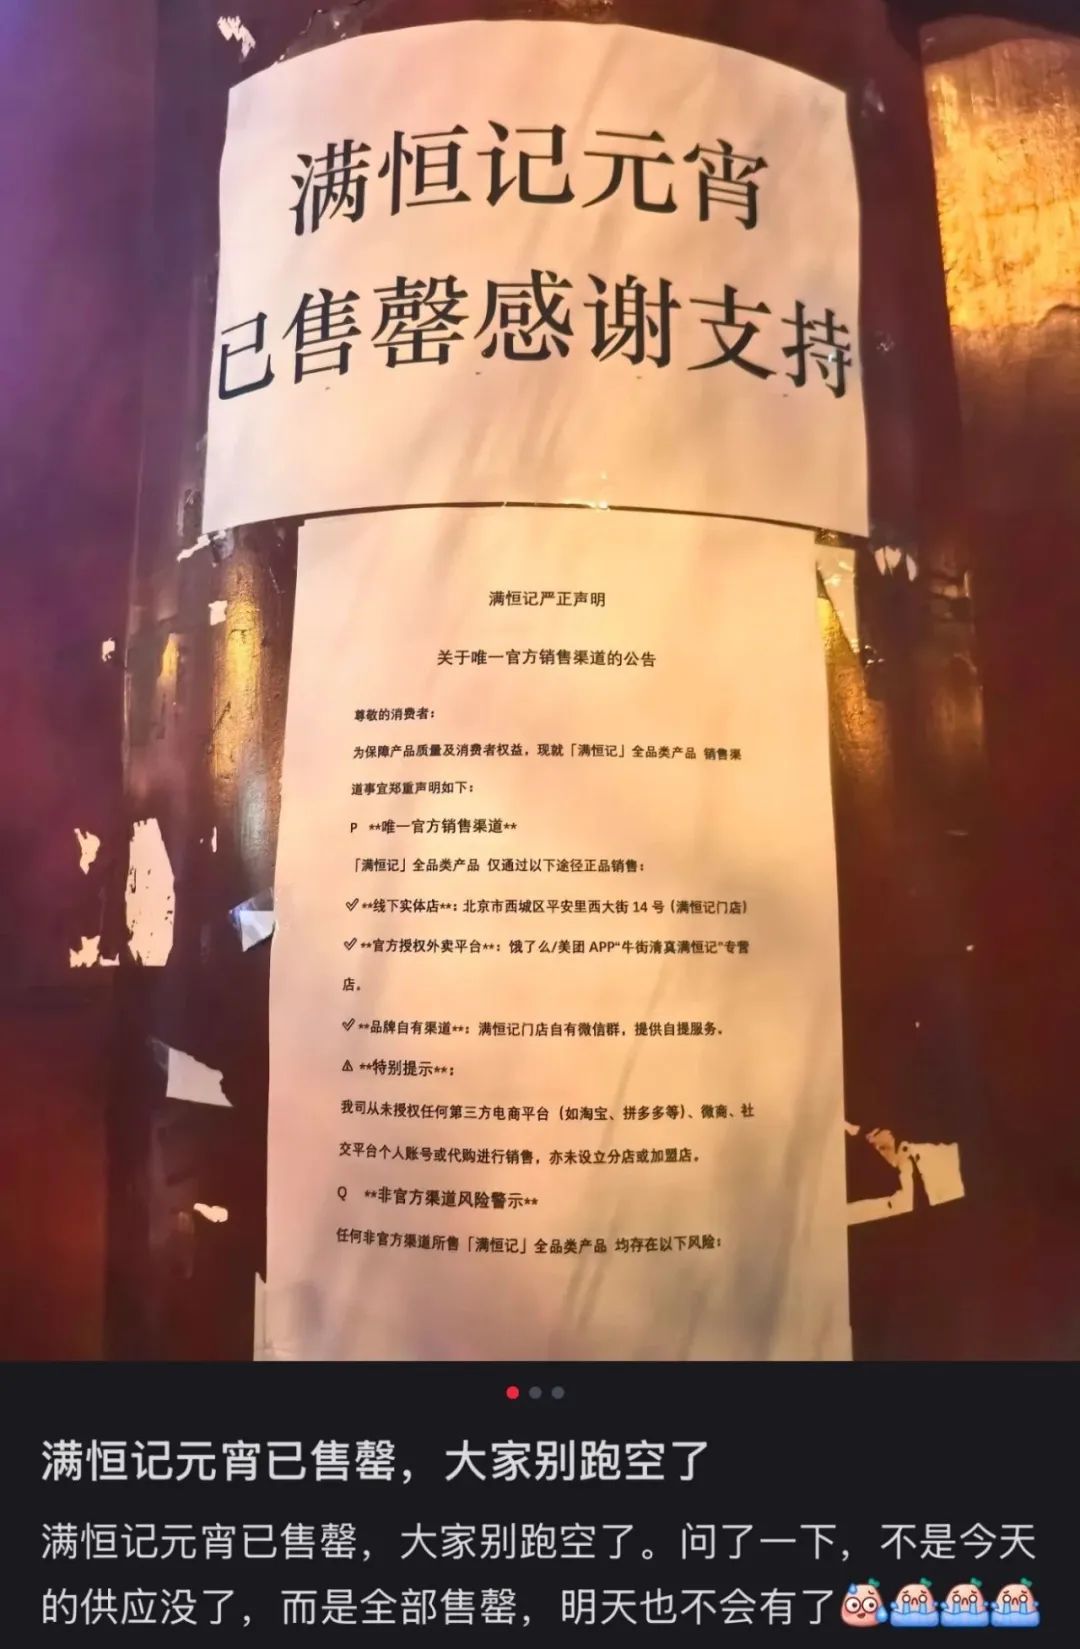 满恒记元宵
已售罄感谢支持
满恒记严正声明
关于唯一官方销售渠道的公告
尊敬的消费者：
为保障产品质量及消费者权益，现就「满恒记」全品类产品 销售渠
道事宜郑重声明如下：
P **唯一官方销售渠道**
「满恒记」全品类产品 仅通过以下途径正品销售：
✓**线下实体店**：北京市西城区平安里西大街 14 号（满恒记门店）
✓**官方授权外卖平台**：饿了么/美团 APP“牛街清真满恒记”专营
店。
✓**品牌自有渠道**：满恒记门店自有微信群，提供自提服务。
⚠ **特别提示**：
我司从未授权任何第三方电商平台（如淘宝、拼多多等）、微商、社
交平台个人账号或代购进行销售，亦未设立分店或加盟店。
Q **非官方渠道风险警示**
任何非官方渠道所售「满恒记」全品类产品 均存在以下风险：
满恒记元宵已售罄，大家别跑空了
满恒记元宵已售罄，大家别跑空了。问了一下，不是今天
的供应没了，而是全部售罄，明天也不会有了